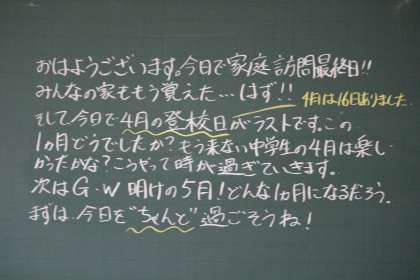 おはようございます。今日で家庭訪問最終日!!
みんなの家ももう覚えた…はず!!
4月は16日ありました
そして、今日で4月の登校日がラストです。この
1ヵ月どうでしたか?もう来ない中学生の4月は楽し
かったかな?こうやって時が過ぎていきます。
次はG・W明けの5月!どんな1ヵ月になるだろう。
まずは、今日を"ちゃんと"過ごそうね!